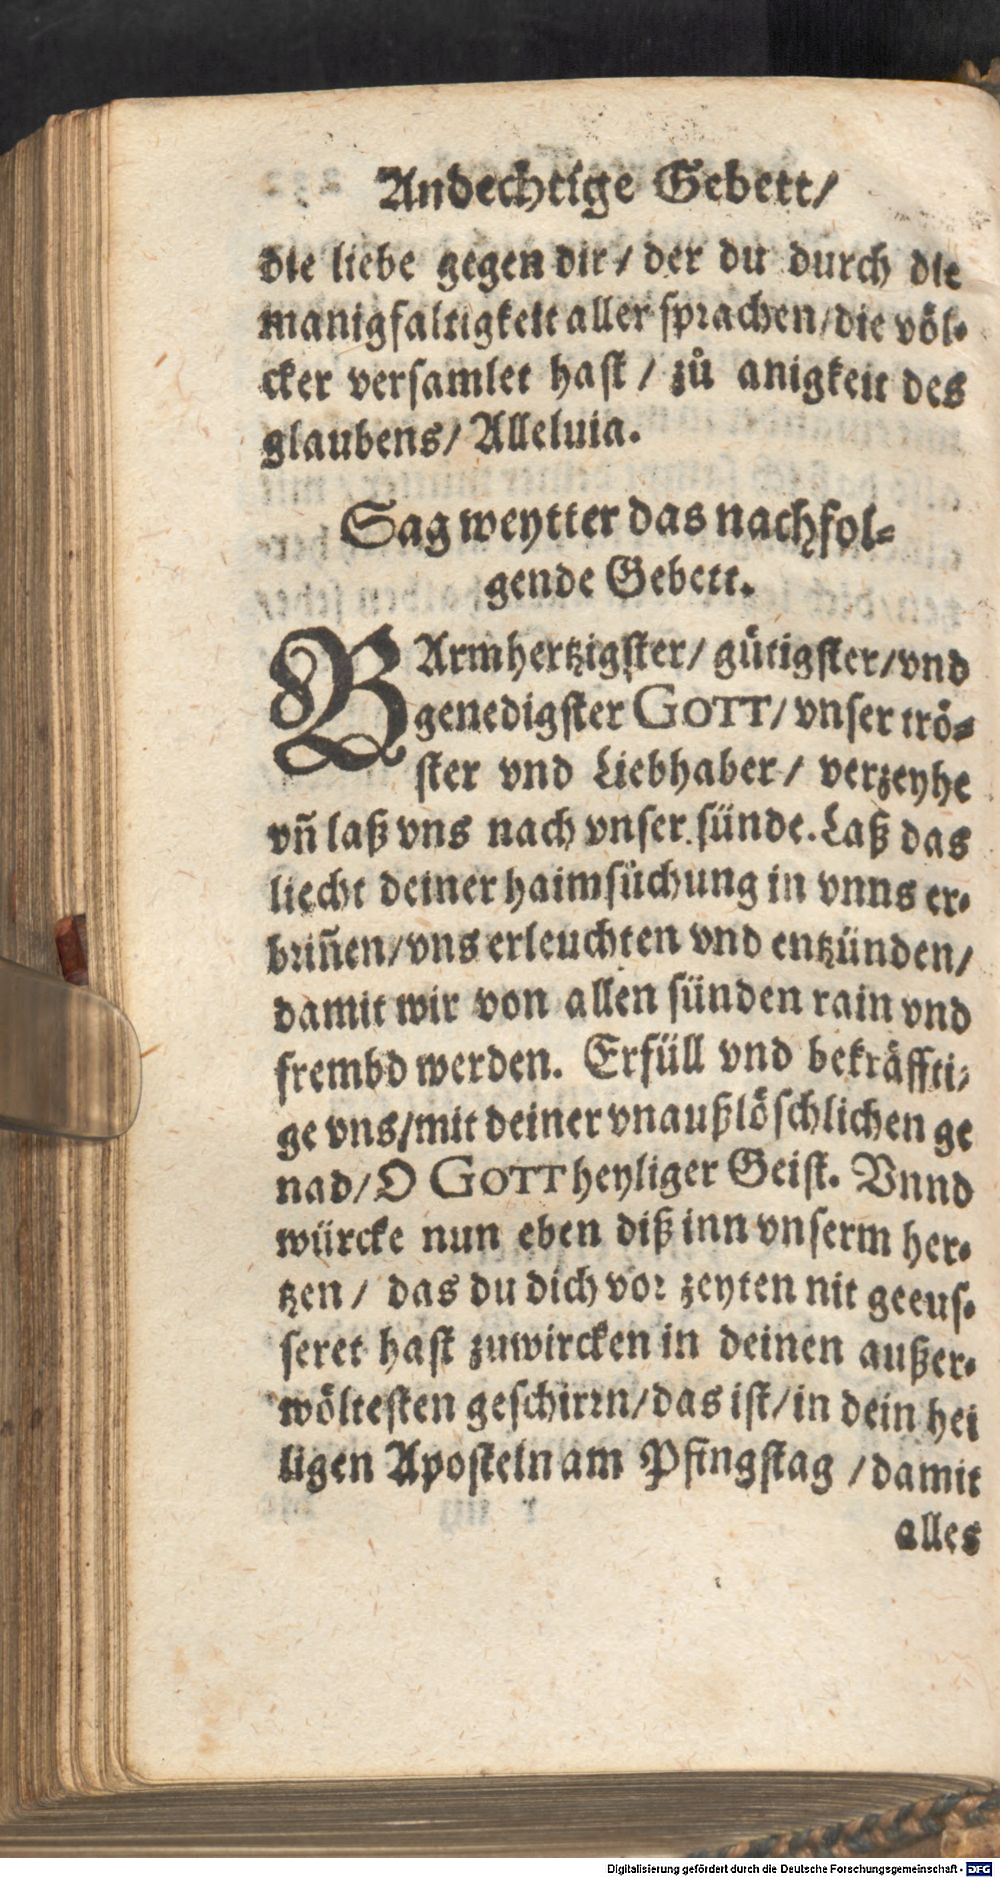 Andechtige Gebett/
die liebe gegen dir/ der du durch die
manigfaltigkeit aller sprachen/die völ-
cker versamlet hast / zů anigkeit des
glaubens/ Alleluia.
Sag weytter das nachfol-
gende Gebett.
BArmhertzigster/ gütigster/vnd
genedigster GOTT/ vnser trö-
ster vnd Liebhaber/ verzeyhe
vñ laß vns nach vnser sünde. Laß das
liecht deiner haimsüchung in vnns er-
briñen/vns erleuchten vnd entzünden/
damit wir von allen sünden rain vnd
frembd werden. Erfüll vnd bekräffti-
ge vns/mit deiner vnaußlöschlichen ge
nad/O GOTT heyliger Geist. Vnnd
würcke nun eben diß inn vnserm her-
tzen / das du dich vor zeyten nit geeus-
seret hast zuwircken in deinen außer-
wöltesten geschirrn/das ist/in dein hei
ligen Aposteln am Pfingstag /damit
alles
Digitalisierung gefördert durch die Deutsche Forschungsgemeinschaft - DFG